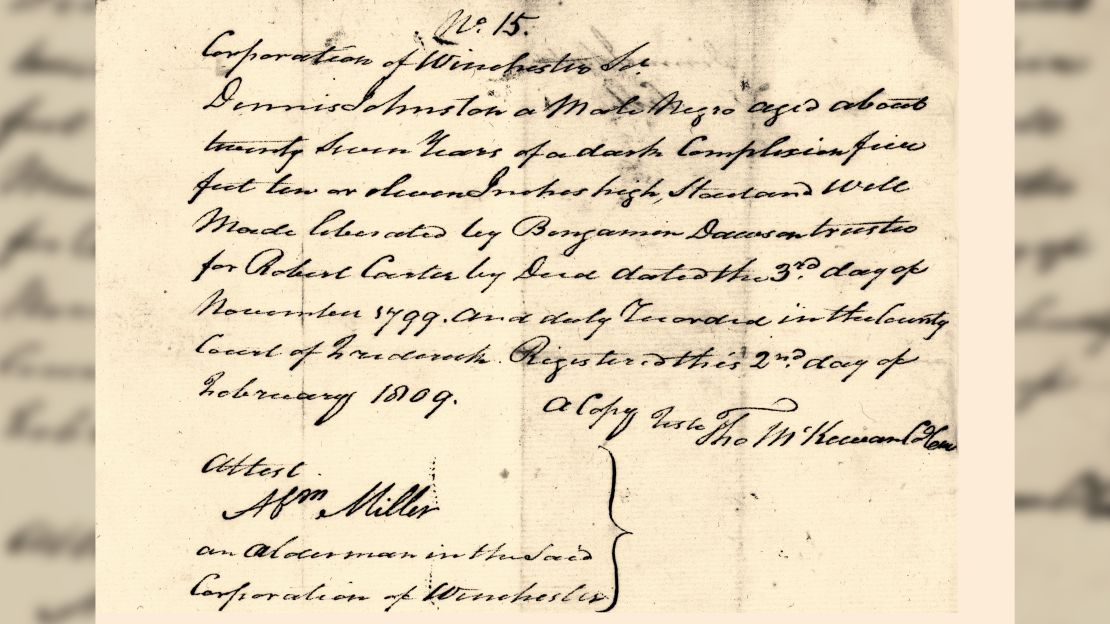 No. 15.
Corporation of Winchester Sct.
Dennis Johnston a Male Negro aged about
twenty Seven Years of a dark Complexion five
feet ten or eleven Inches high, Stout and Well
Made liberated by Bengamin Dawson trustee
for Robert Carter by Deed dated the 3rd. day of
November 1799. And duly Recorded in the County
Court of Frederick. Registered this 2nd. day of
February 1809.
A Copy Teste Tho McKewan
Attest
Abm. Miller
an Alderman in the Said
Corporation of Winchester